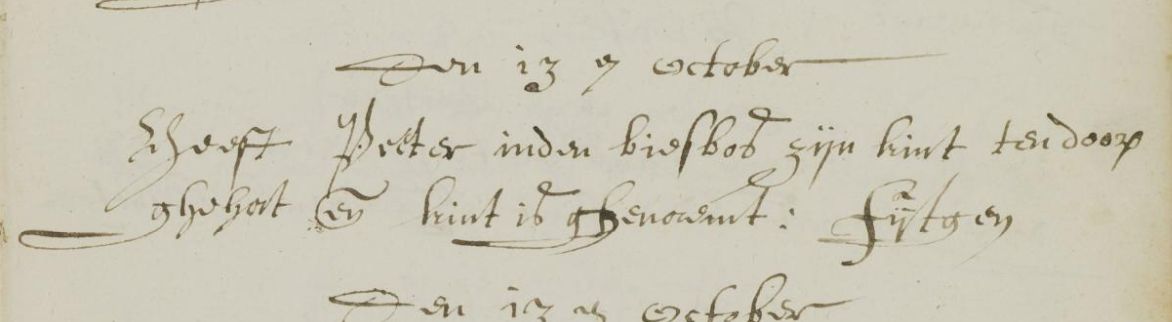 Den 13 en october
Heeft Peeter inden biesbos zijn kint ten doop
ghehat en kint is ghenaemt : Fijtgen
Den 13 en October